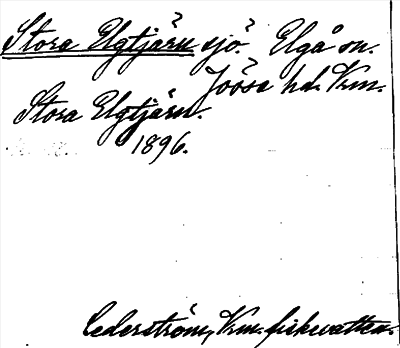 Stora Elgtjärn sjö? Elgå sn.
Jösse hd. Vrm.
Stora Elgtjärn.
1896.
Cederström, Vrm. fiskevatten.